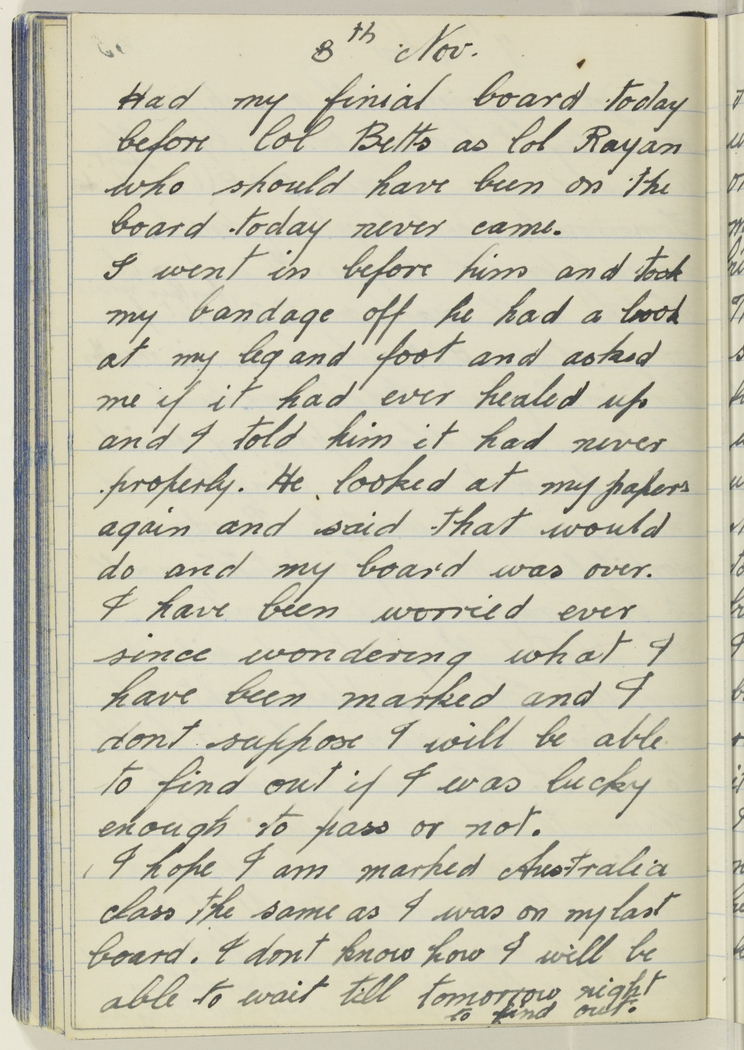 8th Nov.
Had my finial board today
before Col Betts as Col Rayan
who should have been on the
board today never came.
I went in before him and took
my bandage off he had a look
at my leg and foot and asked
me if it had ever healed up
and I told him it had never
properly. He looked at my papers
again and said that would
do and my board was over.
I have been worried ever
since wondering what I
have been marked and I
dont suppose I will be able
to find out if I was lucky
enough to pass or not.
I hope I am marked Australia
class the same as I was on my last
board. I dont know how I will be
able to wait till tomorrow night
to find out.